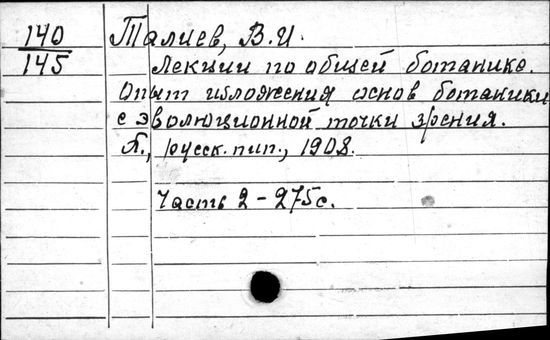 140
145
Талиев, В.И.
Лекции по общей ботанике.
Опыт изложения основ ботаники
с эволюционной точки зрения.
П., русск. тип., 1908.
Часть 2 - 275с.